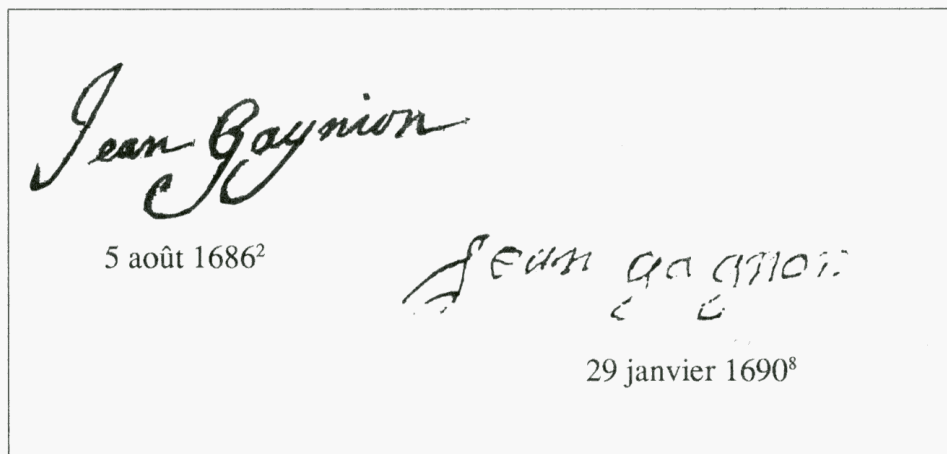 Jean Gagnion
5 août 1686²
Jean gagnon
29 janvier 1690⁸